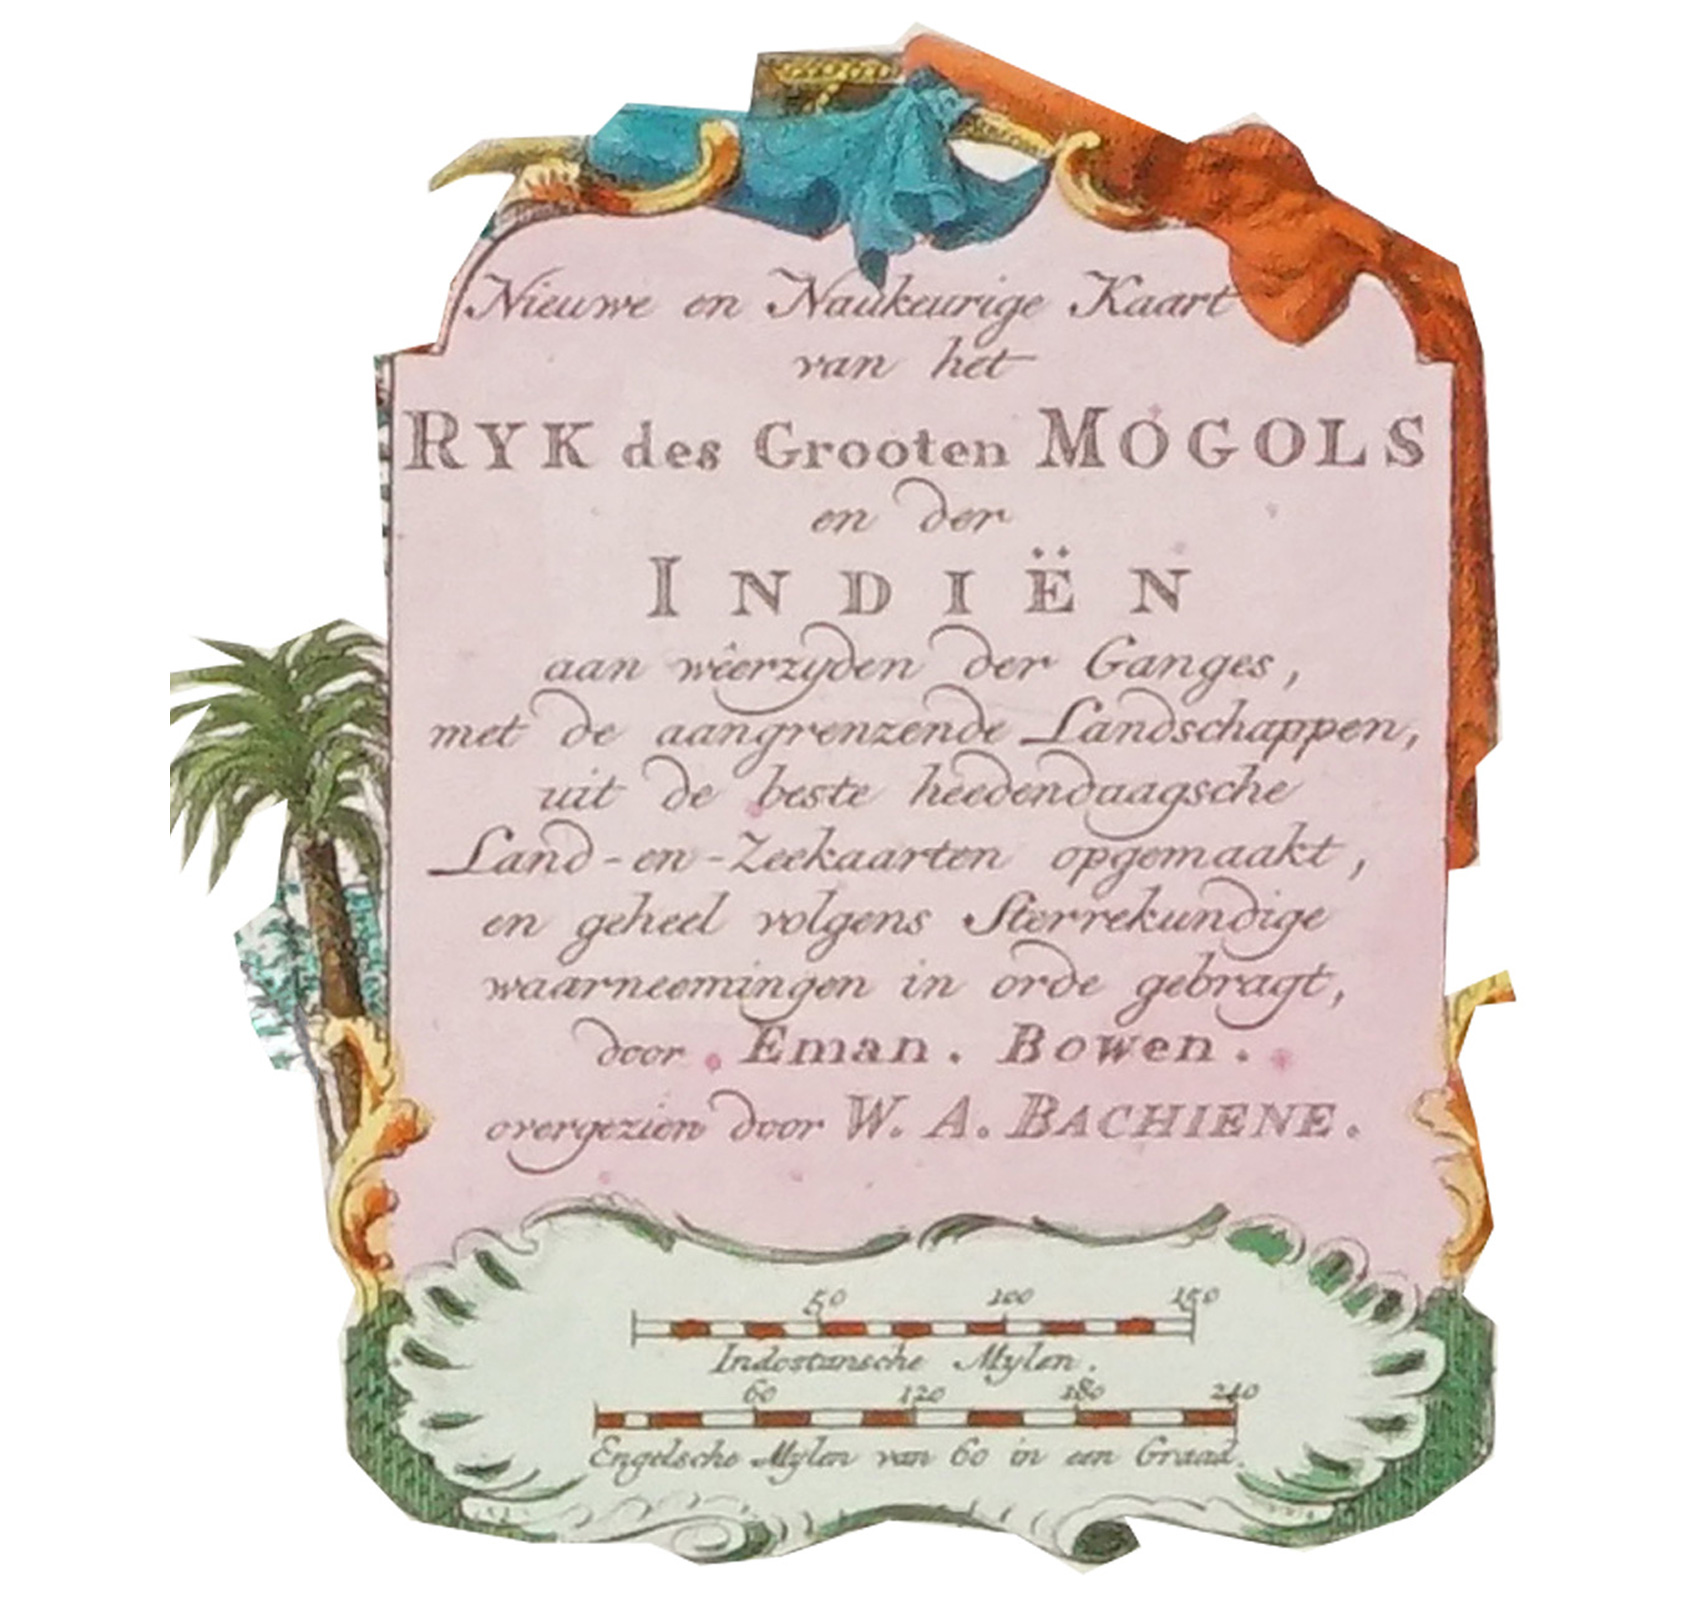 Nieuwe en Naukeurige Kaart
van het
RYK des Grooten MOGOLS
en der
INDIËN
aan wêerzyden der Ganges,
met de aangrenzende Landschappen,
uit de beste heedendaagsche
Land-en-Zeekaarten opgemaakt,
en geheel volgens Sterrekundige
waarneemingen in orde gebragt,
door Eman. Bowen.
overgezien door W. A. BACHIENE.
50 100 150
Indostansche Mylen.
60 120 180 240
Engelsche Mylen van 60 in een Graad.